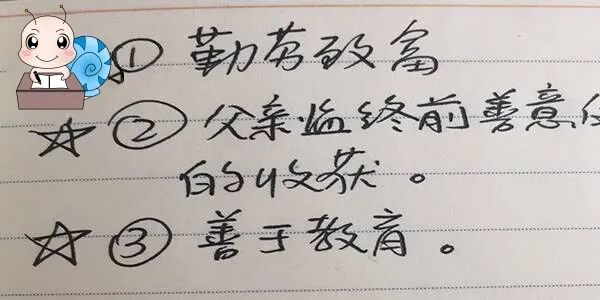 ① 勤劳致富
☆ ② 父亲临终前善意
的收获。
☆ ③ 善于教育。